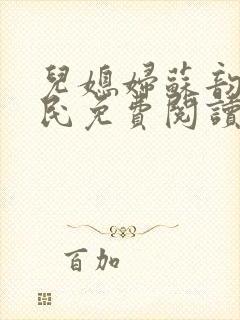 兒媳婦蘇韵
民免費閱讀
百加